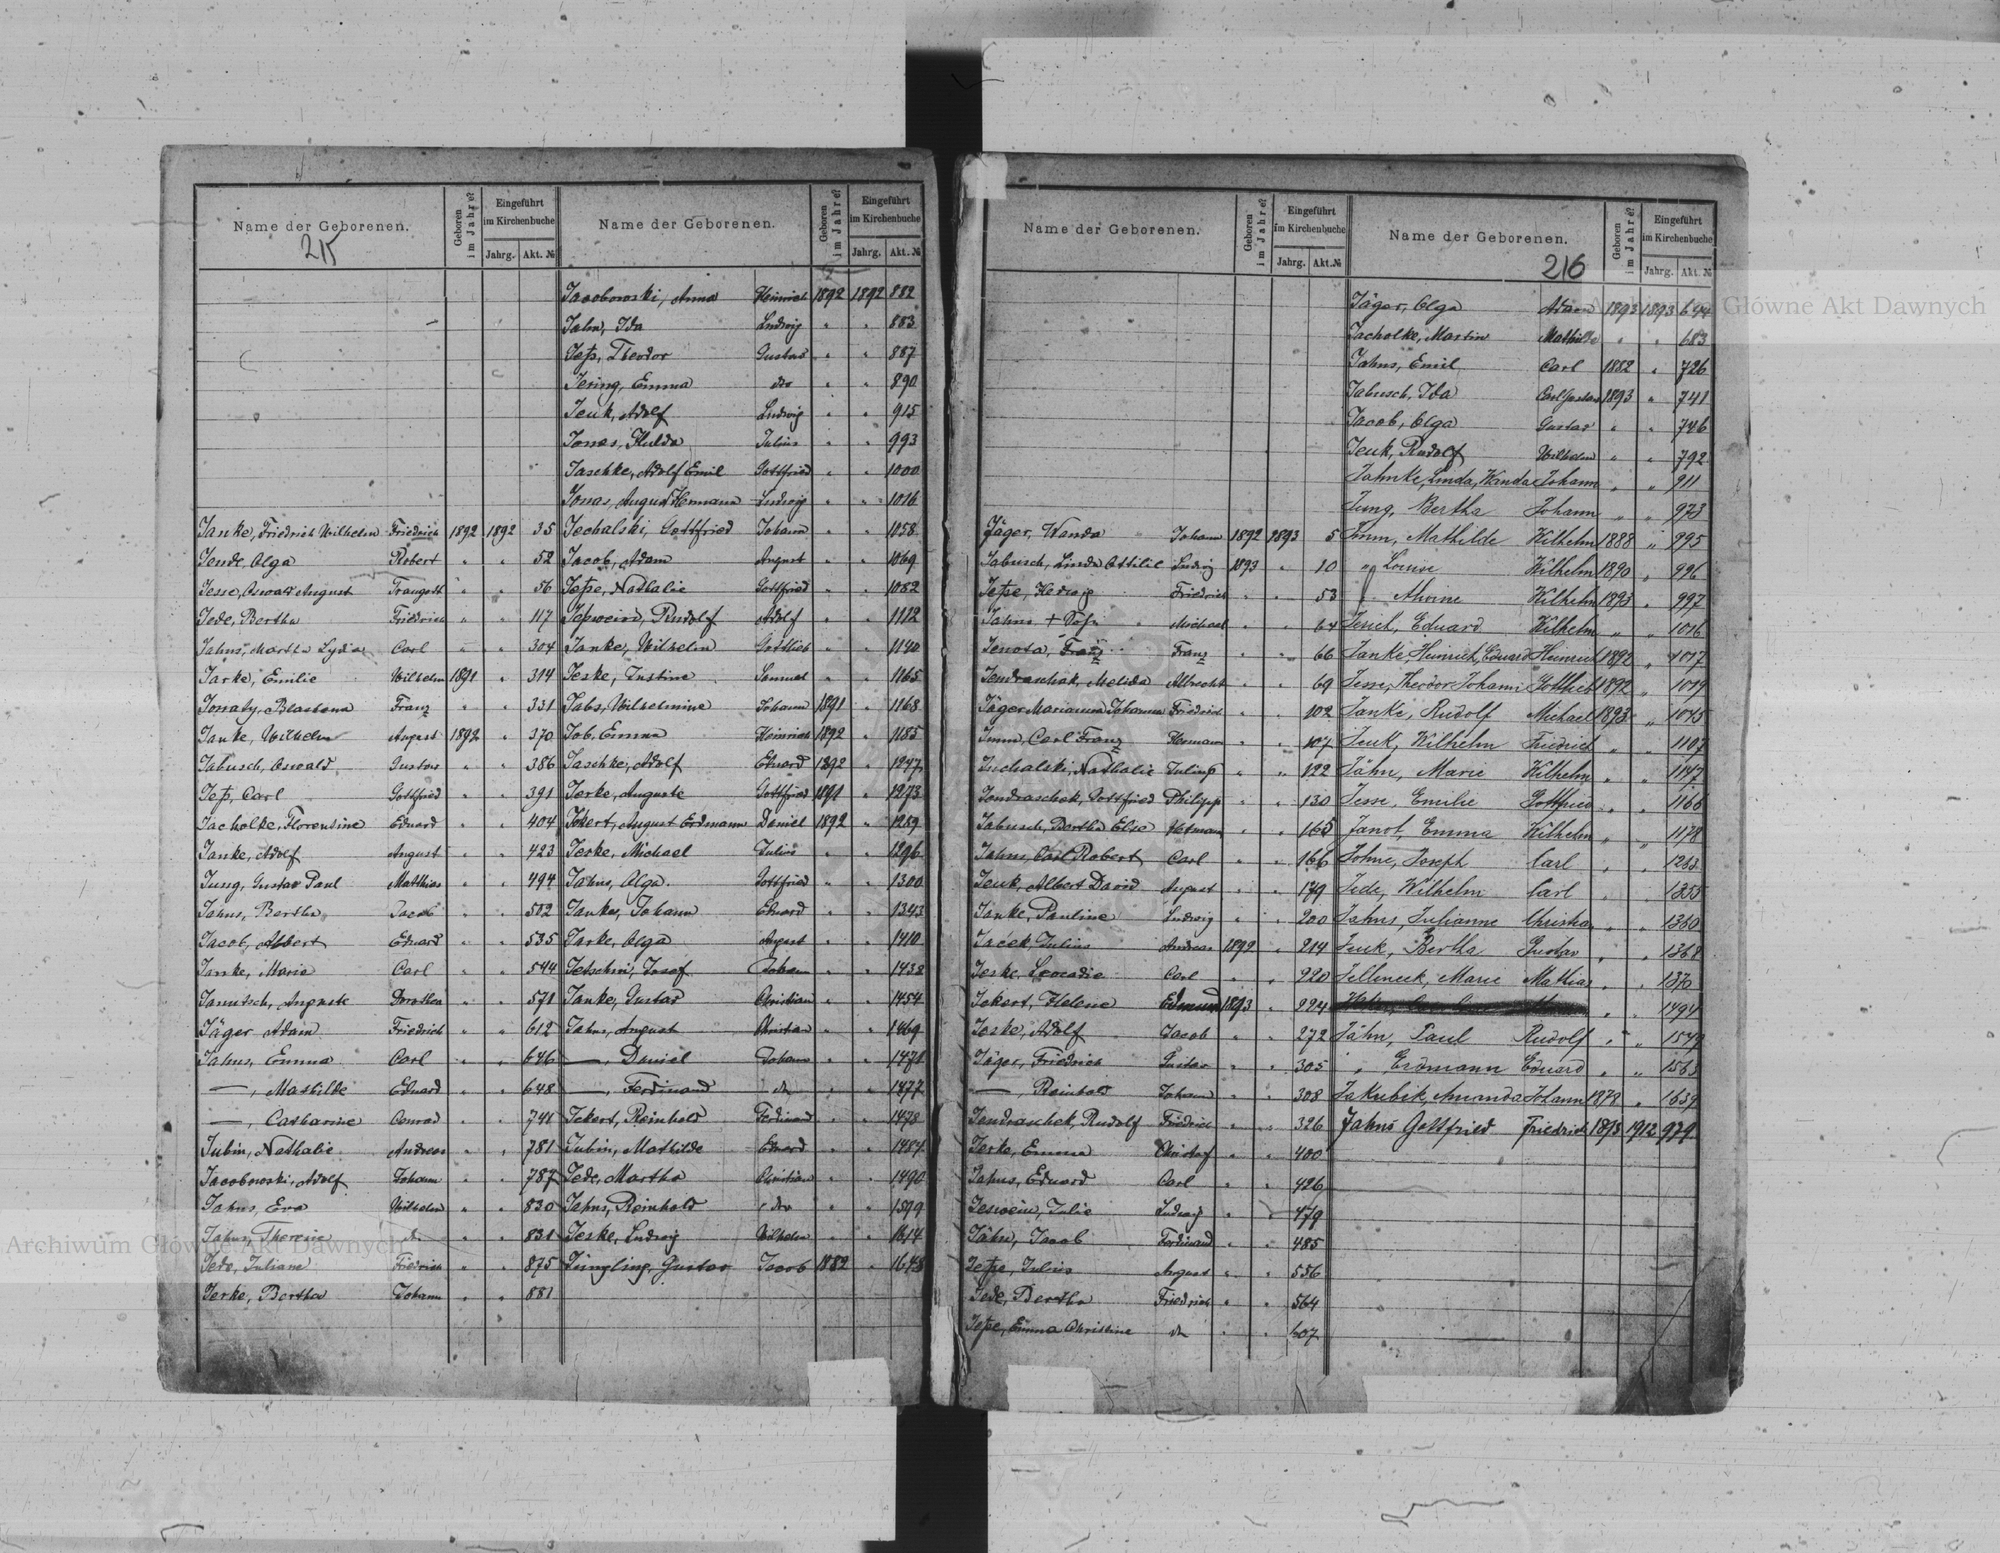 Name der Geborenen. Geboren im Jahre? Eingeführt im Kirchenbuche Jahrg. Akt. №
215
Janke, Friedrich Wilhelm Friedrich 1892 1892 35
Jende, Olga Robert " " 52
Jesse, Oswald August Traugott " " 56
Jede, Bertha Friedrich " " 117
Jahns, Martha Lydia Carl " " 304
Jarke, Emilie Wilhelm 1891 " 314
Franz " " 331
Janke, Wilhelm August 1892 " 370
Jabusch, Oswald Gustav " " 386
Jeß, Carl Gottfried " " 391
Jacholke, Florentine Eduard " " 404
Janke, Adolf August " " 423
Jung, Gustav Paul Matthias " " 494
Jahns, Bertha Jacob " " 502
Jacob, Albert Eduard " " 535
Janke, Marie Carl " " 544
Janutsch, Auguste Dorothea " " 571
Jäger, Adam Friedrich " " 612
Jahns, Emma Carl " " 646
—, Mathilde Eduard " " 648
—, Catharine Conrad " " 741
Jubin, Nathalie Andreas " " 781
Jacobowski, Adolf Johann " " 787
Jahns, Eva Wilhelm " " 830
Jahns, Therese do " " 831
Jede, Juliane Friedrich " " 875
Jerke, Bertha Johann " " 881
Name der Geborenen. Geboren im Jahre? Eingeführt im Kirchenbuche Jahrg. Akt. №
Jacobowski, Anna Heinrich 1892 1892 882
Jahn, Ida Ludwig " " 883
Jeß, Theodor Gustav " " 887
Jering, Emma do " " 890
Jeuk, Adolf Ludwig " " 915
Jonas, Hulda Julius " " 993
Jaschke, Adolf Emil Gottfried " " 1000
Jonas, August Hermann Ludwig " " 1016
Jechalski, Gottfried Johann " " 1058
Jacob, Adam August " " 1069
Jeße, Nathalie Gottfried " " 1082
Jeßwein, Rudolf Adolf " " 1112
Janke, Wilhelm Gottlieb " " 1140
Jeske, Justine Samuel " " 1165
Jabs, Wilhelmine Johann 1891 " 1168
Job, Emma Heinrich 1892 " 1185
Jaschke, Adolf Eduard 1892 " 1247
Jerke, Auguste Gottfried 1891 " 1273
Jokert, August Erdmann Daniel 1892 " 1289
Jeske, Michael Julius " " 1296
Jahns, Olga Gottfried " " 1300
Janke, Johann Eduard " " 1343
Jarke, Olga August " " 1410
Josef Johann " " 1438
Janke, Gustav Christian " " 1454
Jahns, August Christian " " 1469
—, Daniel Johann " " 1471
—, Ferdinand do " " 1477
Jekert, Reinhold Ferdinand " " 1478
Jubin, Mathilde Eduard " " 1487
Jede, Martha Christian " " 1490
Jahns, Reinhold do " " 1599
Jeske, Ludwig Wilhelm " " 1614
Jüngling, Gustav Jacob 1882 " 1678
Name der Geborenen. Geboren im Jahre? Eingeführt im Kirchenbuche Jahrg. Akt. №
Jäger, Wanda Johann 1892 1893 5
Jabusch, Linda Ottilie Ludwig 1893 " 10
Jeße, Hedwig Friedrich " " 53
Jahns + Michael " " 64
Jenota, Franz Franz " " 66
Jendraschak, Melida Albrecht " " 69
Jäger Marianna Johanna Friedrich " " 102
Imm, Carl Franz Hermann " " 107
Juchalski, Nathalie Julius " " 122
Jendraschek, Gottfried Philipp " " 130
Jabusch, Bertha Else Herman " " 165
Jahns, Carl Robert Carl " " 166
Jeuk, Albert David August " " 179
Janke, Pauline Ludwig " " 200
Jaček, Julius Andreas 1892 " 214
Jeske, Leocadie Carl " " 220
Jekert, Helene Edmund 1893 " 224
Jeske, Adolf Jacob " " 272
Jäger, Friedrich Gustav " " 305
—, Reinhold Johann " " 308
Jendraschek, Rudolf Friedrich " " 326
Jerke, Emma Christof " " 400
Jahns, Eduard Carl " " 426
Jeswein, Julie Ludwig " " 479
Jähn, Jacob Ferdinand " " 485
Jeße, Julius August " " 556
Jede, Bertha Friedrich " " 564
Jeße, Emma Christine do " " 607
Name der Geborenen. Geboren im Jahre? Eingeführt im Kirchenbuche Jahrg. Akt. №
216
Jäger, Olga Adam 1893 1893 644
Jacholke, Martin Mathilde " " 683
Jahns, Emil Carl 1882 " 726
Jabusch, Ida Carl Gustav 1893 " 741
Jacob, Olga Gustav " " 746
Jeuk, Rudolf Wilhelm " " 792
Jahnke, Linda, Wanda Johann " " 911
Jung, Bertha Johann " " 973
Imm, Mathilde Wilhelm 1888 " 995
" Louise Wilhelm 1890 " 996
" Alwine Wilhelm 1893 " 997
Jersch, Eduard Wilhelm " " 1016
Janke, Heinrich, Eduard Heinrich 1892 " 1017
Jesse, Theodor Johann Gottlieb 1892 " 1019
Janke, Rudolf Michael 1893 " 1045
Jeuk, Wilhelm Friedrich " " 1107
Jähn, Marie Wilhelm " " 1147
Jesse, Emilie Gottfried " " 1166
Janot, Emma Wilhelm " " 1178
Johne, Joseph Carl " " 1263
Jede, Wilhelm Carl " " 1353
Jahns, Julianne Christian " " 1360
Jeuk, Bertha Gustav " " 1368
Marie Mathias " " 1370
" " 1494
Jähn, Paul Rudolf " " 1549
" Erdmann Eduard " " 1563
Jakubik, Amanda Johann 1878 " 1639
Jahns Gottfried Friedrich 1893 1912 929
Archiwum Główne Akt Dawnych
Archiwum Główne Akt Dawnych